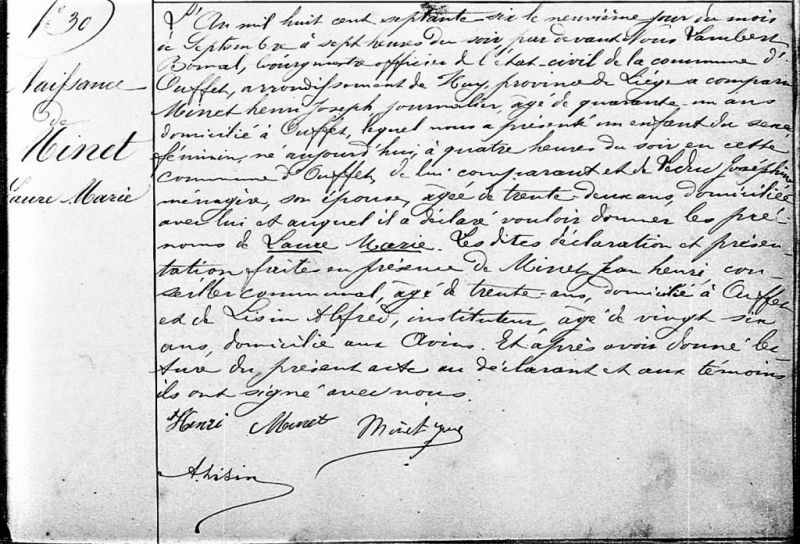 N° 30
Naissance
de
Minet
Laure Marie
L'An mil huit cent septante six le neuvième jour du mois
de Septembre à sept heures du soir, par devant Nous Lambert
Bomal, bourgmestre officier de l'état-civil de la commune d'
Ouffet, arrondissement de Huy, province de Liége a comparu
Minet henri Joseph journalier, âgé de quarante-un ans
domicilié à Ouffet, lequel nous a présenté un enfant du sexe
féminin, né aujourd'hui, à quatre heures du soir en cette
commune d'Ouffet, de lui comparant et de Ledru Joséphine
ménagère, son épouse, âgée de trente-deux ans, domiciliée
avec lui et auquel il a déclaré vouloir donner les pré-
noms de Laure Marie. Les dites déclaration et présen-
tation faites en présence de Minet Jean henri con-
seiller communal, âgé de trente-ans, domicilié à Ouffet
et de Lisin Alfred, instituteur, âgé de vingt six
ans, domicilié aux Avins. Et après avoir donné lec-
ture du présent acte au déclarant et aux témoins
ils ont signé avec nous.
Henri Minet Minet
A. Lisin